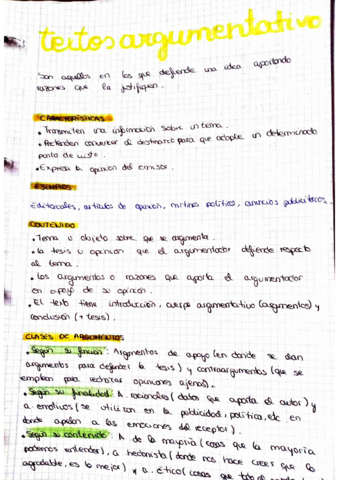 textos argumentativo
Son aquellos en los que defiende una idea aportando
razones que la justifiquen.
CARACTERÍSTICAS
• Transmiten una información sobre un tema.
• Pretenden convencer al destinatario para que adopte un determinado
punto de vista.
• Expresa la opinión del emisor.
EJEMPLOS
Editoriales, artículos de opinión, mítines políticos, anuncios publicitarios.
CONTENIDO
• Tema u objeto sobre que se argumenta.
• la tesis u opinión que el argumentador defiende respecto
al tema.
• Los argumentos o razones que aporta el argumentador
en apoyo de su opinión.
• El texto tiene introducción, cuerpo argumentativo (argumentos) y
conclusión (+ tesis).
CLASES DE ARGUMENTOS
• Según su función: Argumentos de apoyo (en donde se dan
argumentos para defender la tesis) y contraargumentos (que se
emplean para rechazar opiniones ajenas).
• Según su finalidad: A. racionales (datos que aporta el autor) y
a emotivos (se utilizan en la publicidad, política, etc en
donde apelan a las emociones del receptor).
• Según su contenido: A. de la mayoría (cosas que la mayoría
podemos entender), a hedonista (donde nos hace creer que lo
agradable, es lo mejor) y a. ético (cosas que